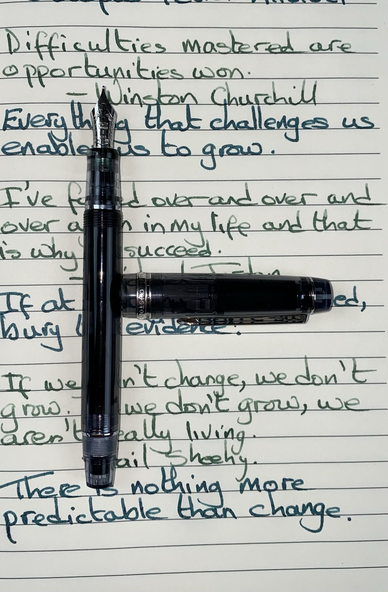 Difficulties mastered are
opportunities won.
- Winston Churchill
Everything that challenges us
enables us to grow.
I've failed over and over and
over again in my life and that
is why I succeed.
If at
bury evidence.
If we don't change, we don't
grow. we don't grow, we
aren't really living.
Gail Sheehy.
There is nothing more
predictable than change.